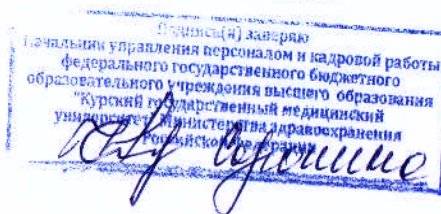 Подпись(и) заверяю
Начальник управления персоналом и кадровой работы
федерального государственного бюджетного
образовательного учреждения высшего образования
"Курский государственный медицинский
университет" Министерства здравоохранения
Российской Федерации